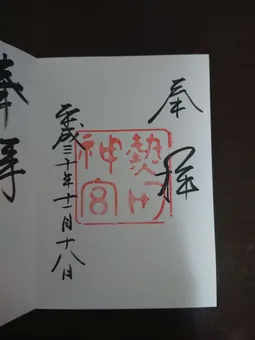 奉拝
勢
神宮
平成三十年十一月十八日
奉拝